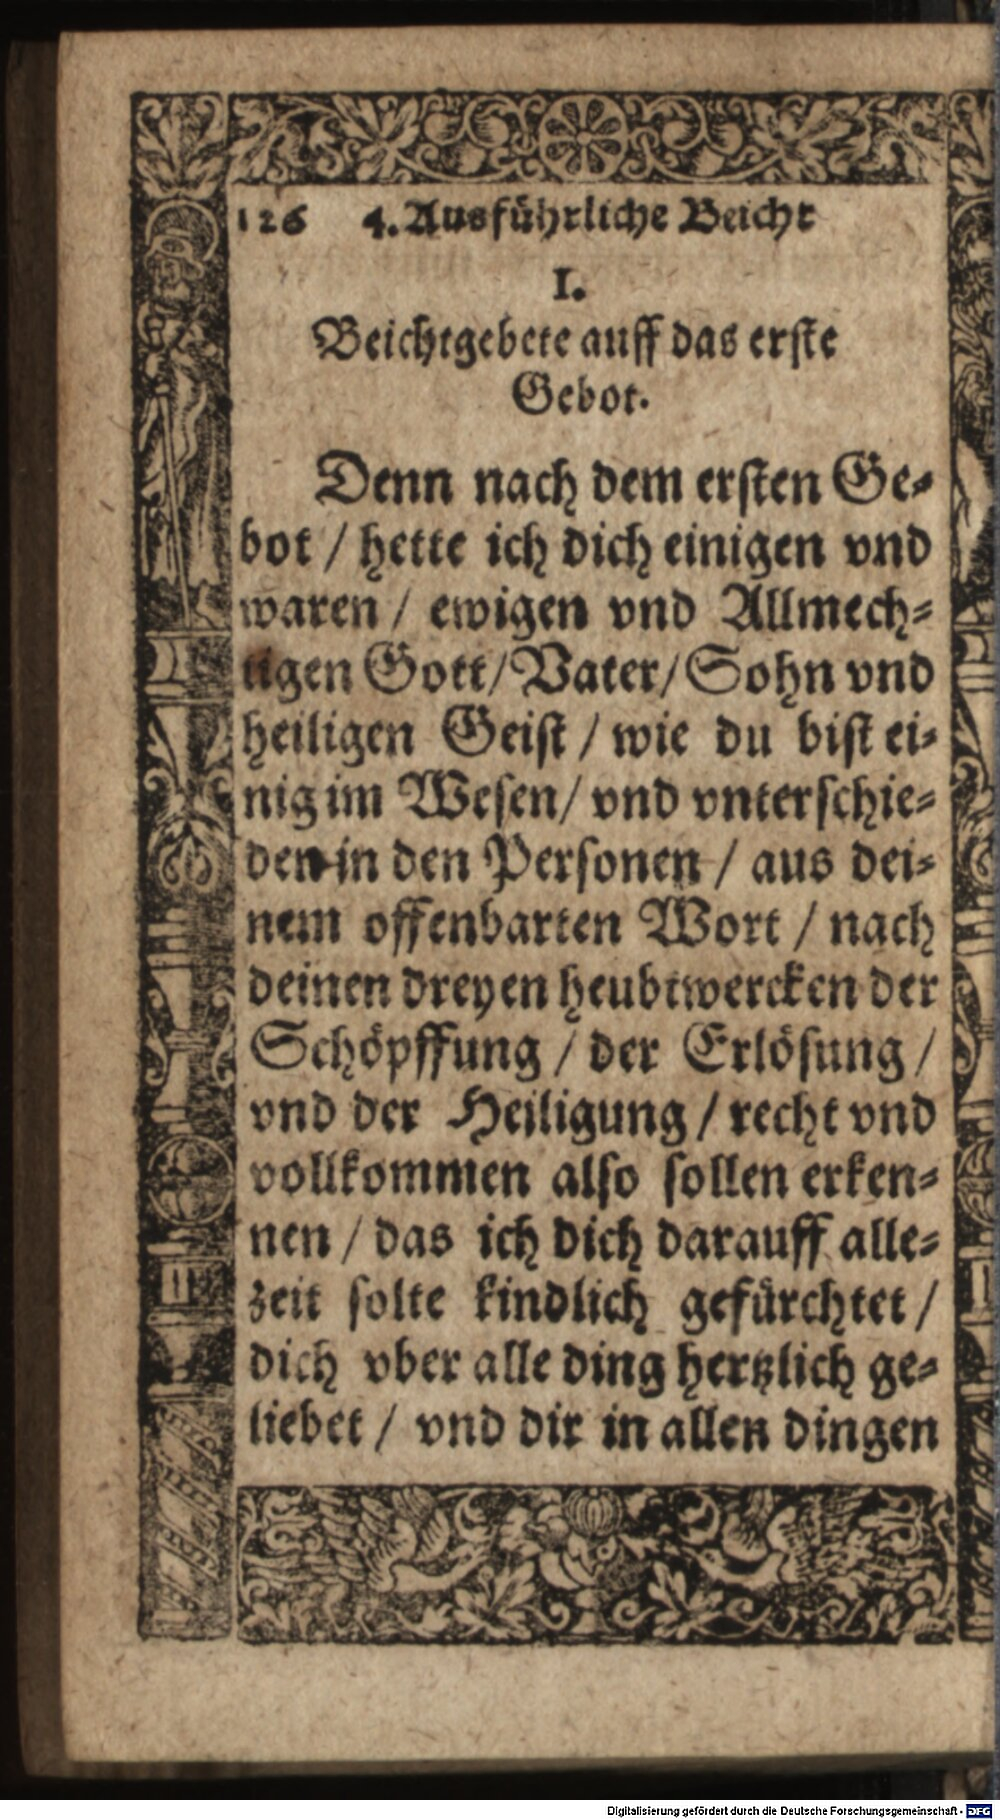 126 4. Ausführliche Beicht
I.
Beichtgebete auff das erste
Gebot.
Denn nach dem ersten Ge-
bot / hette ich dich einigen vnd
waren / ewigen vnd Allmech-
tigen Gott / Vater / Sohn vnd
heiligen Geist / wie du bist ei-
nig im Wesen / vnd vnterschie-
den in den Personen / aus dei-
nem offenbarten Wort / nach
deinen dreyen heubtwercken der
Schöpffung / der Erlösung /
vnd der Heiligung / recht vnd
vollkommen also sollen erken-
nen / das ich dich darauff alle-
zeit solte kindlich gefürchtet /
dich vber alle ding hertzlich ge-
liebet / vnd dir in allen dingen
Digitalisierung gefördert durch die Deutsche Forschungsgemeinschaft - DFG